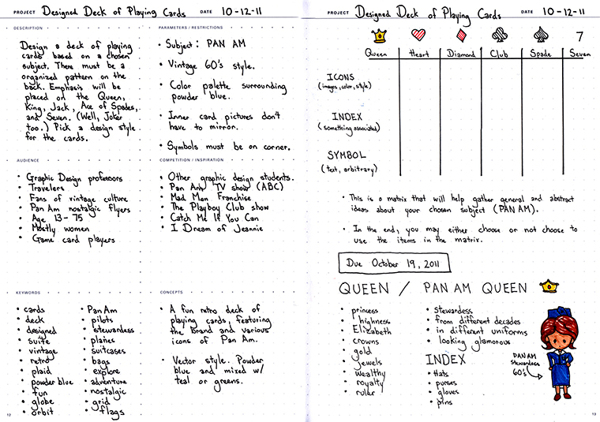 PROJECT Designed Deck of Playing Cards DATE 10-12-11
DESCRIPTION
Design a deck of playing
cards based on a chosen
subject. There must be a
organized pattern on the
back. Emphasis will be
placed on the Queen,
King, Jack, Ace of Spades,
and Seven. (Well, Joker
too.) Pick a design style
for the cards.
PARAMETERS / RESTRICTIONS
• Subject: PAN AM
• Vintage 60's style.
• Color palette surrounding
powder blue.
• Inner card pictures don't
have to mirror.
• Symbols must be on corner.
AUDIENCE
• Graphic Design professors
• Travelers
• Fans of vintage culture
• Pan Am nostalgic flyers
• Age 13-75
• Mostly women
• Game card players
COMPETITION / INSPIRATION
• Other graphic design students.
• Pan Am TV show (ABC)
• Mad Men Franchise
• The Playboy Club show
• Catch Me If You Can
• I Dream of Jeannie
KEYWORDS
• cards
• deck
• designed
• suite
• vintage
• retro
• plaid
• powder blue
• fun
• globe
• orbit
• Pan Am
• pilots
• stewardess
• planes
• suitcases
• bags
• explore
• adventure
• nostalgic
• grid
• flags
CONCEPTS
• A fun retro deck of
playing cards, featuring
the brand and various
icons of Pan Am.
• Vector style. Powder
blue and mixed w/
teal or greens.
12
PROJECT Designed Deck of Playing Cards DATE 10-12-11
7
Queen Heart Diamond Club Spade Seven
ICONS
(images, color, style)
INDEX
(something associated)
SYMBOL
(text, arbitrary)
• This is a matrix that will help gather general and abstract
ideas about your chosen subject (PAN AM).
• In the end, you may either choose or not choose to
use the items in the matrix.
Due October 19, 2011
QUEEN / PAN AM QUEEN
• princess
• highness
• Elizabeth
• crowns
• gold
• jewels
• wealthy
• royalty
• ruler
• stewardess
• from different decades
• in different uniforms
• looking glamorous
INDEX
• Hats
• purses
• gloves
• pins
PAN AM
Stewardess
60's
13